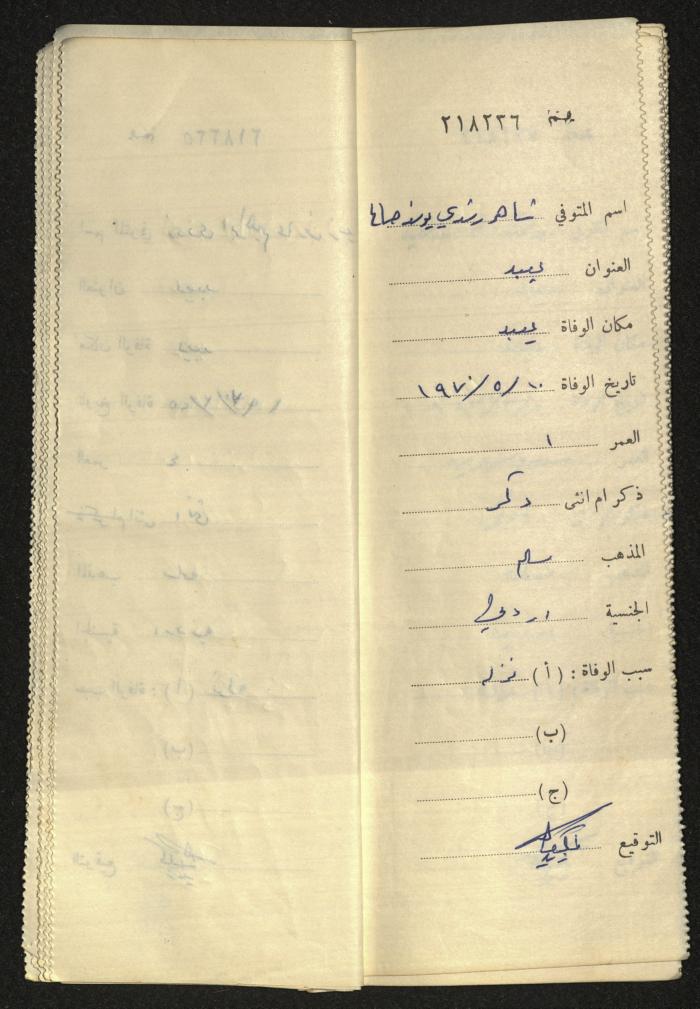 ٢١٨٢٢٦
اسم المتوفي شاهر رشدي يوسف صالح
العنوان يعبد
مكان الوفاة يعبد
تاريخ الوفاة ١٠/٥/١٩٧٠
العمر ١
ذكر ام انثى ذكر
المذهب مسلم
الجنسية اردني
سبب الوفاة : ( أ ) نزله
(ب)
(ج)
التوقيع